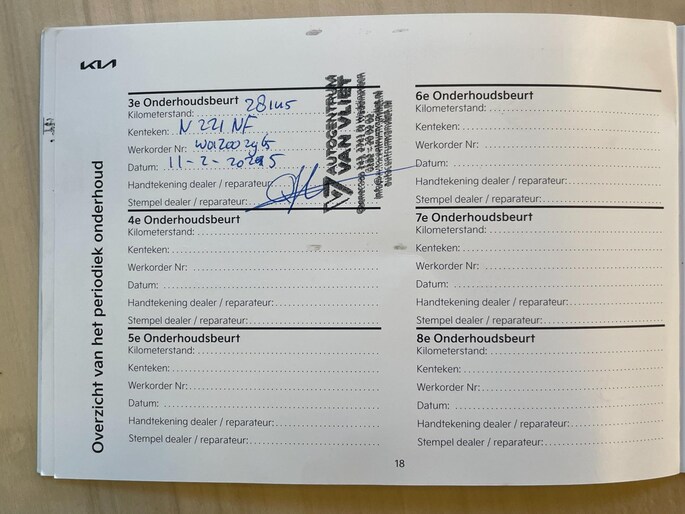 KIA
Overzicht van het periodiek onderhoud
3e Onderhoudsbeurt
Kilometerstand:
Kenteken: N 221 NF
Werkorder Nr:
Datum: 11-2-
Handtekening dealer / reparateur:
Stempel dealer / reparateur:
AUTOCENTRUM
VAN VLIET
4e Onderhoudsbeurt
Kilometerstand:
Kenteken:
Werkorder Nr:
Datum:
Handtekening dealer / reparateur:
Stempel dealer / reparateur:
5e Onderhoudsbeurt
Kilometerstand:
Kenteken:
Werkorder Nr:
Datum:
Handtekening dealer / reparateur:
Stempel dealer / reparateur:
6e Onderhoudsbeurt
Kilometerstand:
Kenteken:
Werkorder Nr:
Datum:
Handtekening dealer / reparateur:
Stempel dealer / reparateur:
7e Onderhoudsbeurt
Kilometerstand:
Kenteken:
Werkorder Nr:
Datum:
Handtekening dealer / reparateur:
Stempel dealer / reparateur:
8e Onderhoudsbeurt
Kilometerstand:
Kenteken:
Werkorder Nr:
Datum:
Handtekening dealer / reparateur:
Stempel dealer / reparateur:
18